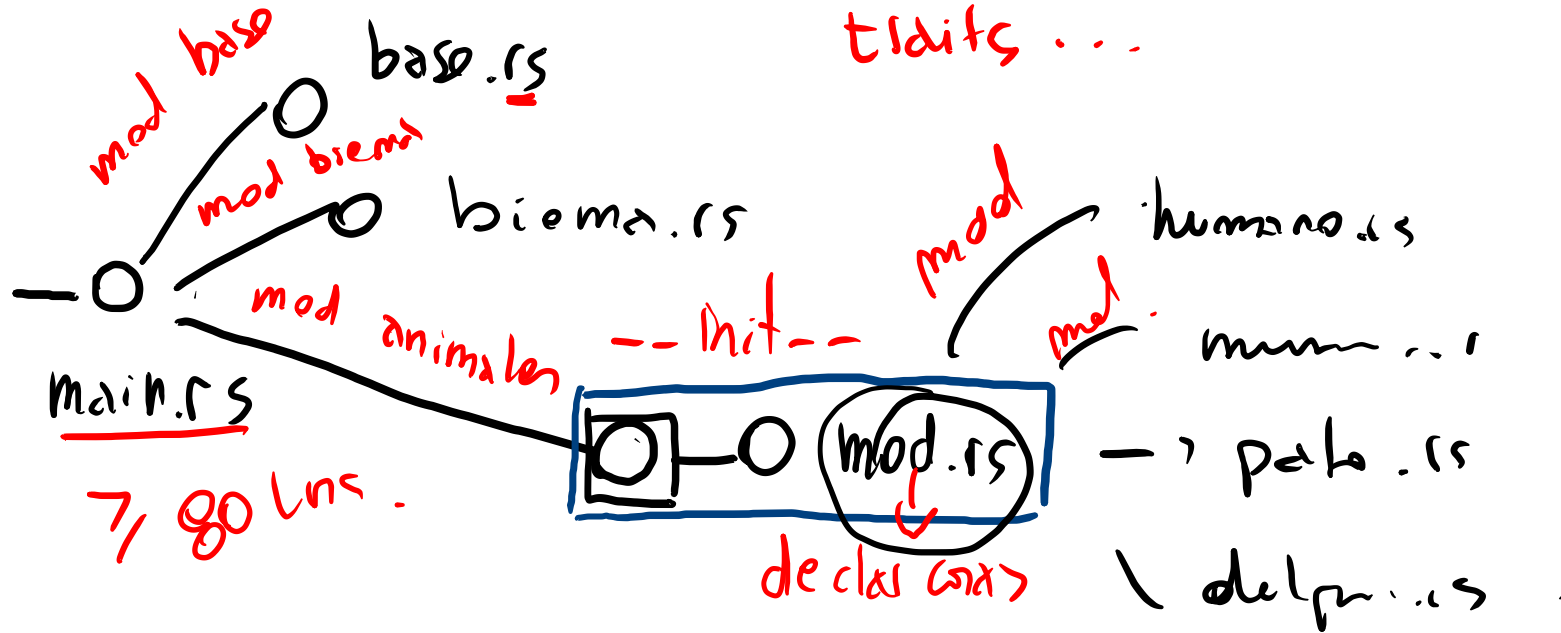 mod base
base.rs
traits ...
mod bioma
bioma.rs
mod
humano.rs
mod animales
--init--
mod.
main.rs
mod.rs
pato.rs
≥ 80 lns.
declaraciones